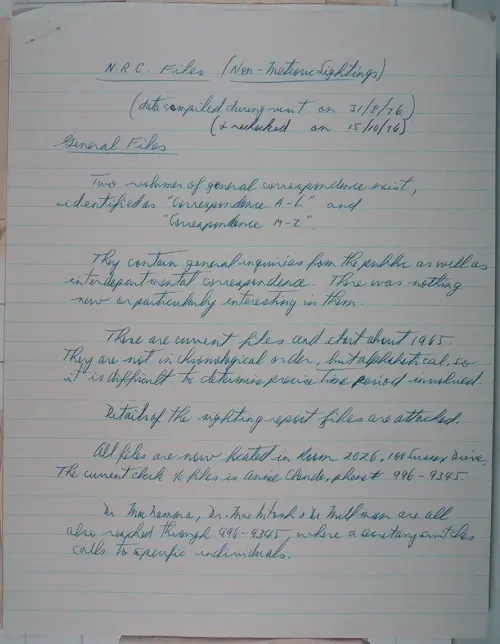 N.R.C. Files (Non-Meteoric Sightings)
(data compiled during visit on 31/8/76)
(& rechecked on 15/10/76)
General Files
Two volumes of general correspondence exist,
identified as "Correspondence A-L" and
"Correspondence M-Z".
They contain general inquiries from the public as well as
interdepartmental correspondence. There was nothing
new or particularly interesting in them.
These are current files and start about 1965.
They are not in chronological order, but alphabetical, so
it is difficult to determine precise time period involved.
Details of the sighting report files are attached.
All files are now located in Room 2026, 100 Sussex Drive.
The current clerk of files is Annie phone # 996-9345.
Dr. MacNamara, Dr. MacIntosh & Dr Millman are all
also reached through 996-9345, where a secretary switches
calls to specific individuals.